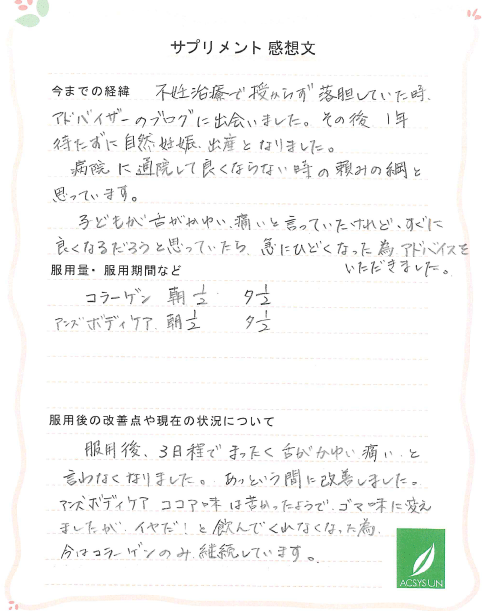 サプリメント 感想文
今までの経緯 不妊治療で授からず落胆していた時、
アドバイザーのブログに出会いました。その後 1年
待たずに自然妊娠、出産となりました。
病院に通院して良くならない時の頼みの綱と
思っています。
子どもが舌がかゆい、痛いと言っていたけれど、すぐに
良くなるだろうと思っていたら、急にひどくなった為、アドバイスを
いただきました。
服用量・服用期間など
コラーゲン 朝 1/2 夕 1/2
アンズボディケア 朝 1/2 夕 1/2
服用後の改善点や現在の状況について
服用後、3日程でまったく舌がかゆい痛いと
言わなくなりました。あっという間に改善しました。
アンズボディケア ココア味は苦かったようで、ゴマ味に変え
ましたが、イヤだ!と飲んでくれなくなった為、
今はコラーゲンのみ継続しています。
ACSYSUN